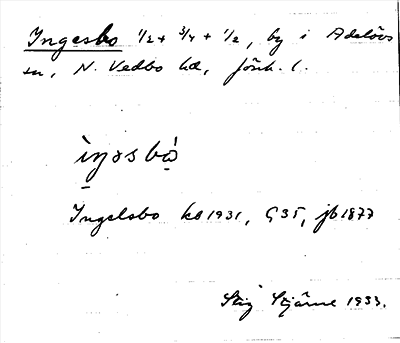 Ingesbo 1/2 + 3/4 + 1/2, by i Adelövs
sn, N. Vedbo hd, Jönk. l.
ìŋəsbò
Ingelsbo kb 1931, G35, jb 1877
Stig Stjärne 1933.